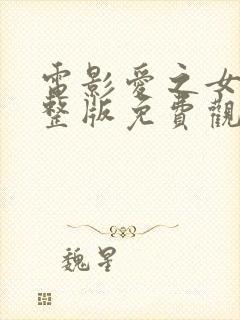 電影愛之女
整版免費觀
魏星